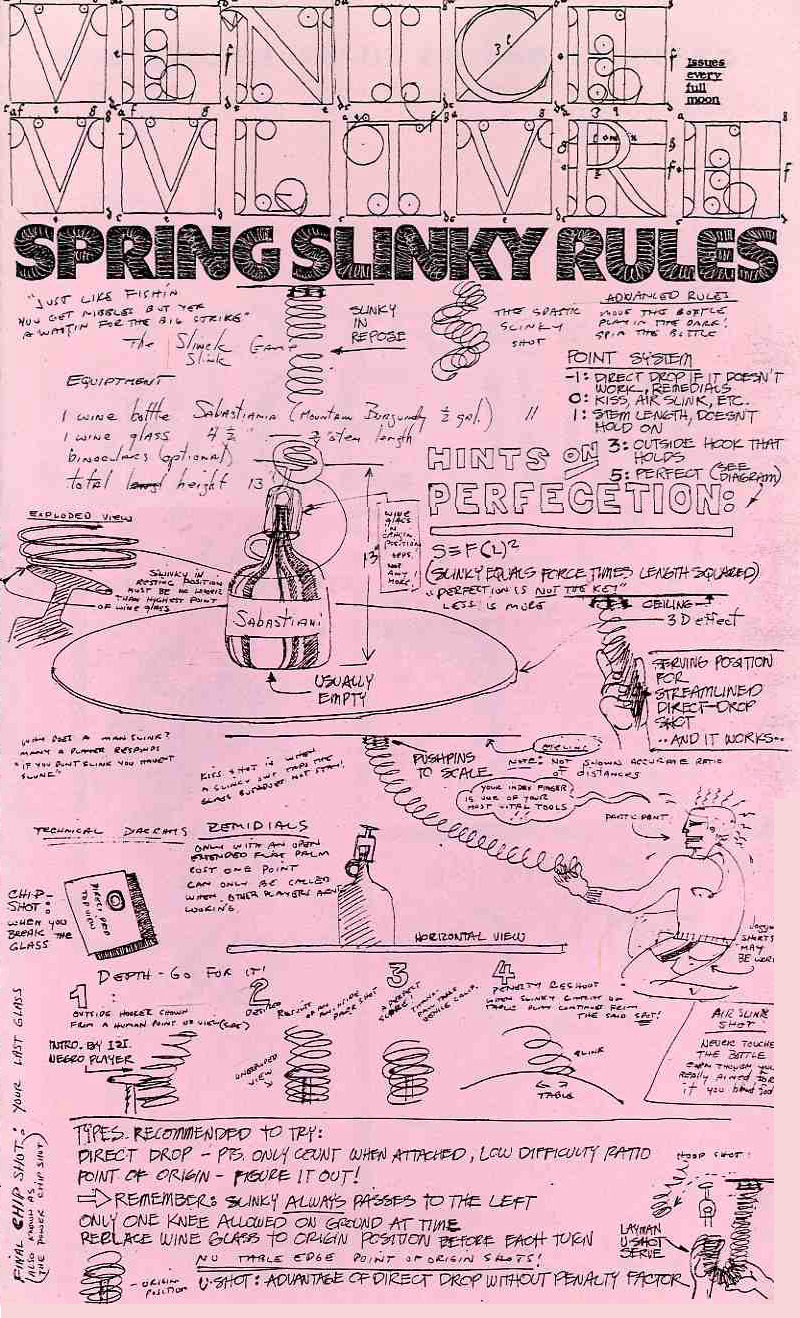 VENICE
VVLIVRE
Issues
every
full
moon
SPRING SLINKY RULES
"JUST LIKE FISHIN
YOU GET NIBBLES BUT YER
A WAITIN FOR THE BIG STRIKE"
The Slinck Game
Slink
SLINKY
IN
REPOSE
THE SPASTIC
SLINKY
SHOT
ADVANCED RULES
MOVE THE BOTTLE
PLAY IN THE DARK!
SPIN THE BOTTLE
EQUIPTMENT
1 wine bottle Sabastiania (Mountain Burgundy ½ gal.)
1 wine glass 4½" stem length
binoculars (optional)
total height 13"
POINT SYSTEM
-1: DIRECT DROP IF IT DOESN'T
WORK, REMEDIALS
0: KISS, AIR SLINK, ETC.
1: STEM LENGTH, DOESN'T
HOLD ON
3: OUTSIDE HOOK THAT
HOLDS
5: PERFECT (SEE
DIAGRAM)
HINTS ON
PERFECETION:
S=F(L)²
(SLINKY EQUALS FORCE TIMES LENGTH SQUARED)
"PERFECTION IS NOT THE KEY"
LESS IS MORE
EXPLODED VIEW
SLINKY IN
RESTING POSITION
MUST BE NO LOWER
THAN HIGHEST POINT
OF WINE GLASS
WINE
GLASS
IN
ORIGIN
POSITION
NOT
ANY
MORE!
13"
Sabastiani
USUALLY
EMPTY
CEILING
3D effect
SERVING POSITION
FOR
STREAMLINED
DIRECT-DROP
SHOT
..AND IT WORKS..
WHY DOES A MAN SLINK?
MANY A PLAYER RESPONDS
"IF YOU DON'T SLINK YOU HAVEN'T
SLUNK"
KISS SHOT IS WHEN
A SLINKY ONLY TAPS THE
GLASS BUT DOES NOT STAY!
PUSHPINS
TO SCALE
CEILING
NOTE: NOT SHOWN ACCURATE RATIO
OF DISTANCES
YOUR INDEX FINGER
IS ONE OF YOUR
MOST VITAL TOOLS
!!
PARTICIPANT
TECHNICAL DIAGRAMS
REMIDIALS
ONLY WITH AN OPEN
EXTENDED FLAT PALM
COST ONE POINT
CAN ONLY BE CALLED
WHEN OTHER PLAYERS AREN'T
LOOKING.
CHIP-
SHOT:
WHEN YOU
BREAK THE
GLASS
DIRECT DROP
TOP VIEW
HORIZONTAL VIEW
SHORTS
MAY
BE WORN
DEPTH - GO FOR IT!
1:
OUTSIDE HOOKER SHOWN
FROM A HUMAN POINT OF VIEW
INTRO. BY IZI.
NEGRO PLAYER
2
DESIRED RESULT OF AN INSIDE
UNEXPLODED
VIEW
3
A PERFECT
SCORE!
4
PENALTY RESHOOT
WHEN SLINKY
TABLE PLAY CONTINUE FROM
THE SAID SPOT!
SLINK
TABLE
AIR SLINK
SHOT
NEVER TOUCHES
THE BOTTLE
EVEN THOUGH YOU
REALLY AIMED FOR
it
FINAL CHIP SHOT: YOUR LAST GLASS
(ALSO KNOWN AS
THE POWER CHIP SHOT)
TYPES RECOMMENDED TO TRY:
DIRECT DROP - PTS. ONLY COUNT WHEN ATTACHED, LOW DIFFICULTY RATIO
POINT OF ORIGIN - FIGURE IT OUT!
REMEMBER: SLINKY ALWAYS PASSES TO THE LEFT
ONLY ONE KNEE ALLOWED ON GROUND AT TIME
REPLACE WINE GLASS TO ORIGIN POSITION BEFORE EACH TURN
NO TABLE EDGE POINT OF ORIGIN SHOTS!
ORIGIN
POSITION
U-SHOT: ADVANTAGE OF DIRECT DROP WITHOUT PENALTY FACTOR
HOOP SHOT:
LAYMAN
U-SHOT
SERVE